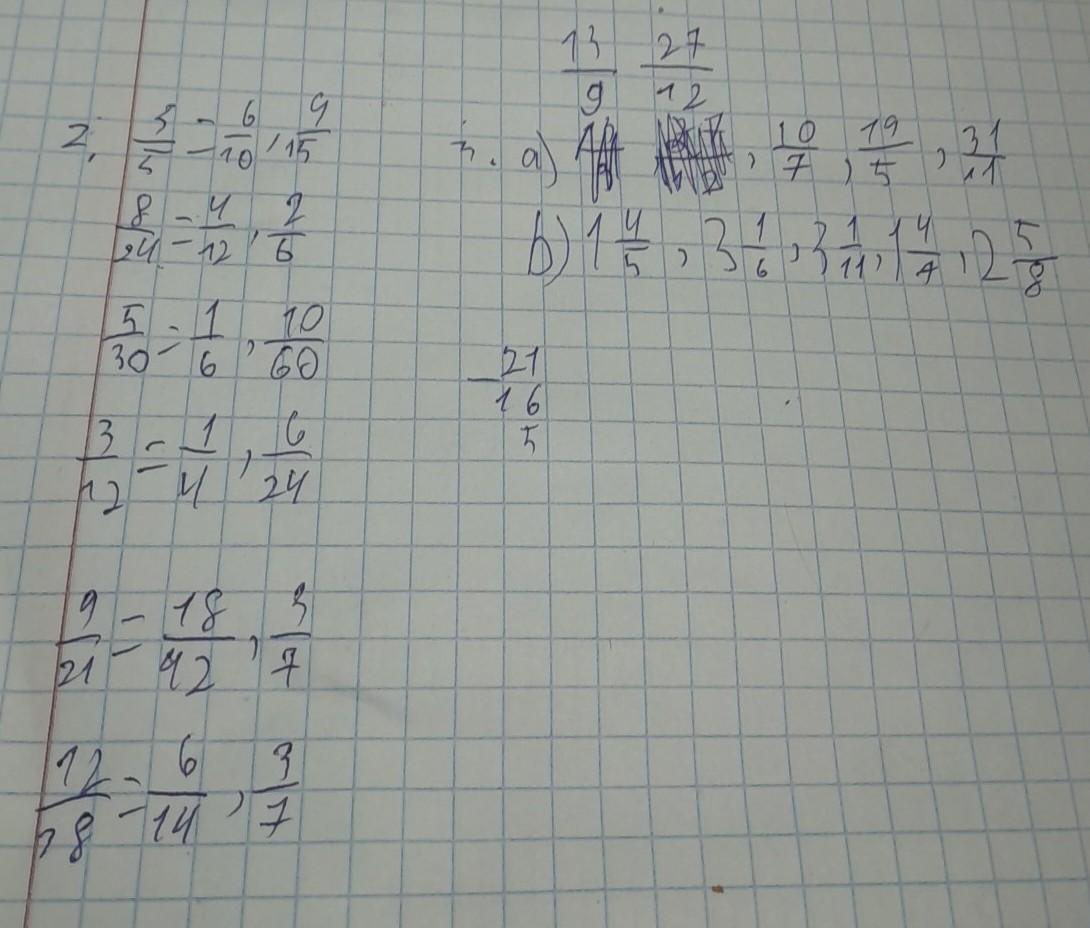 2. 3/5 = 6/10, 9/15
8/24 = 4/12, 2/6
5/30 = 1/6, 10/60
3/12 = 1/4, 6/24
9/21 = 18/42, 3/7
12/28 = 6/14, 3/7
13/9 27/12
a) , 10/7, 19/5, 31/11
b) 1 4/5, 3 1/6, 3 1/11, 1 4/7, 2 5/8
−21
16
5